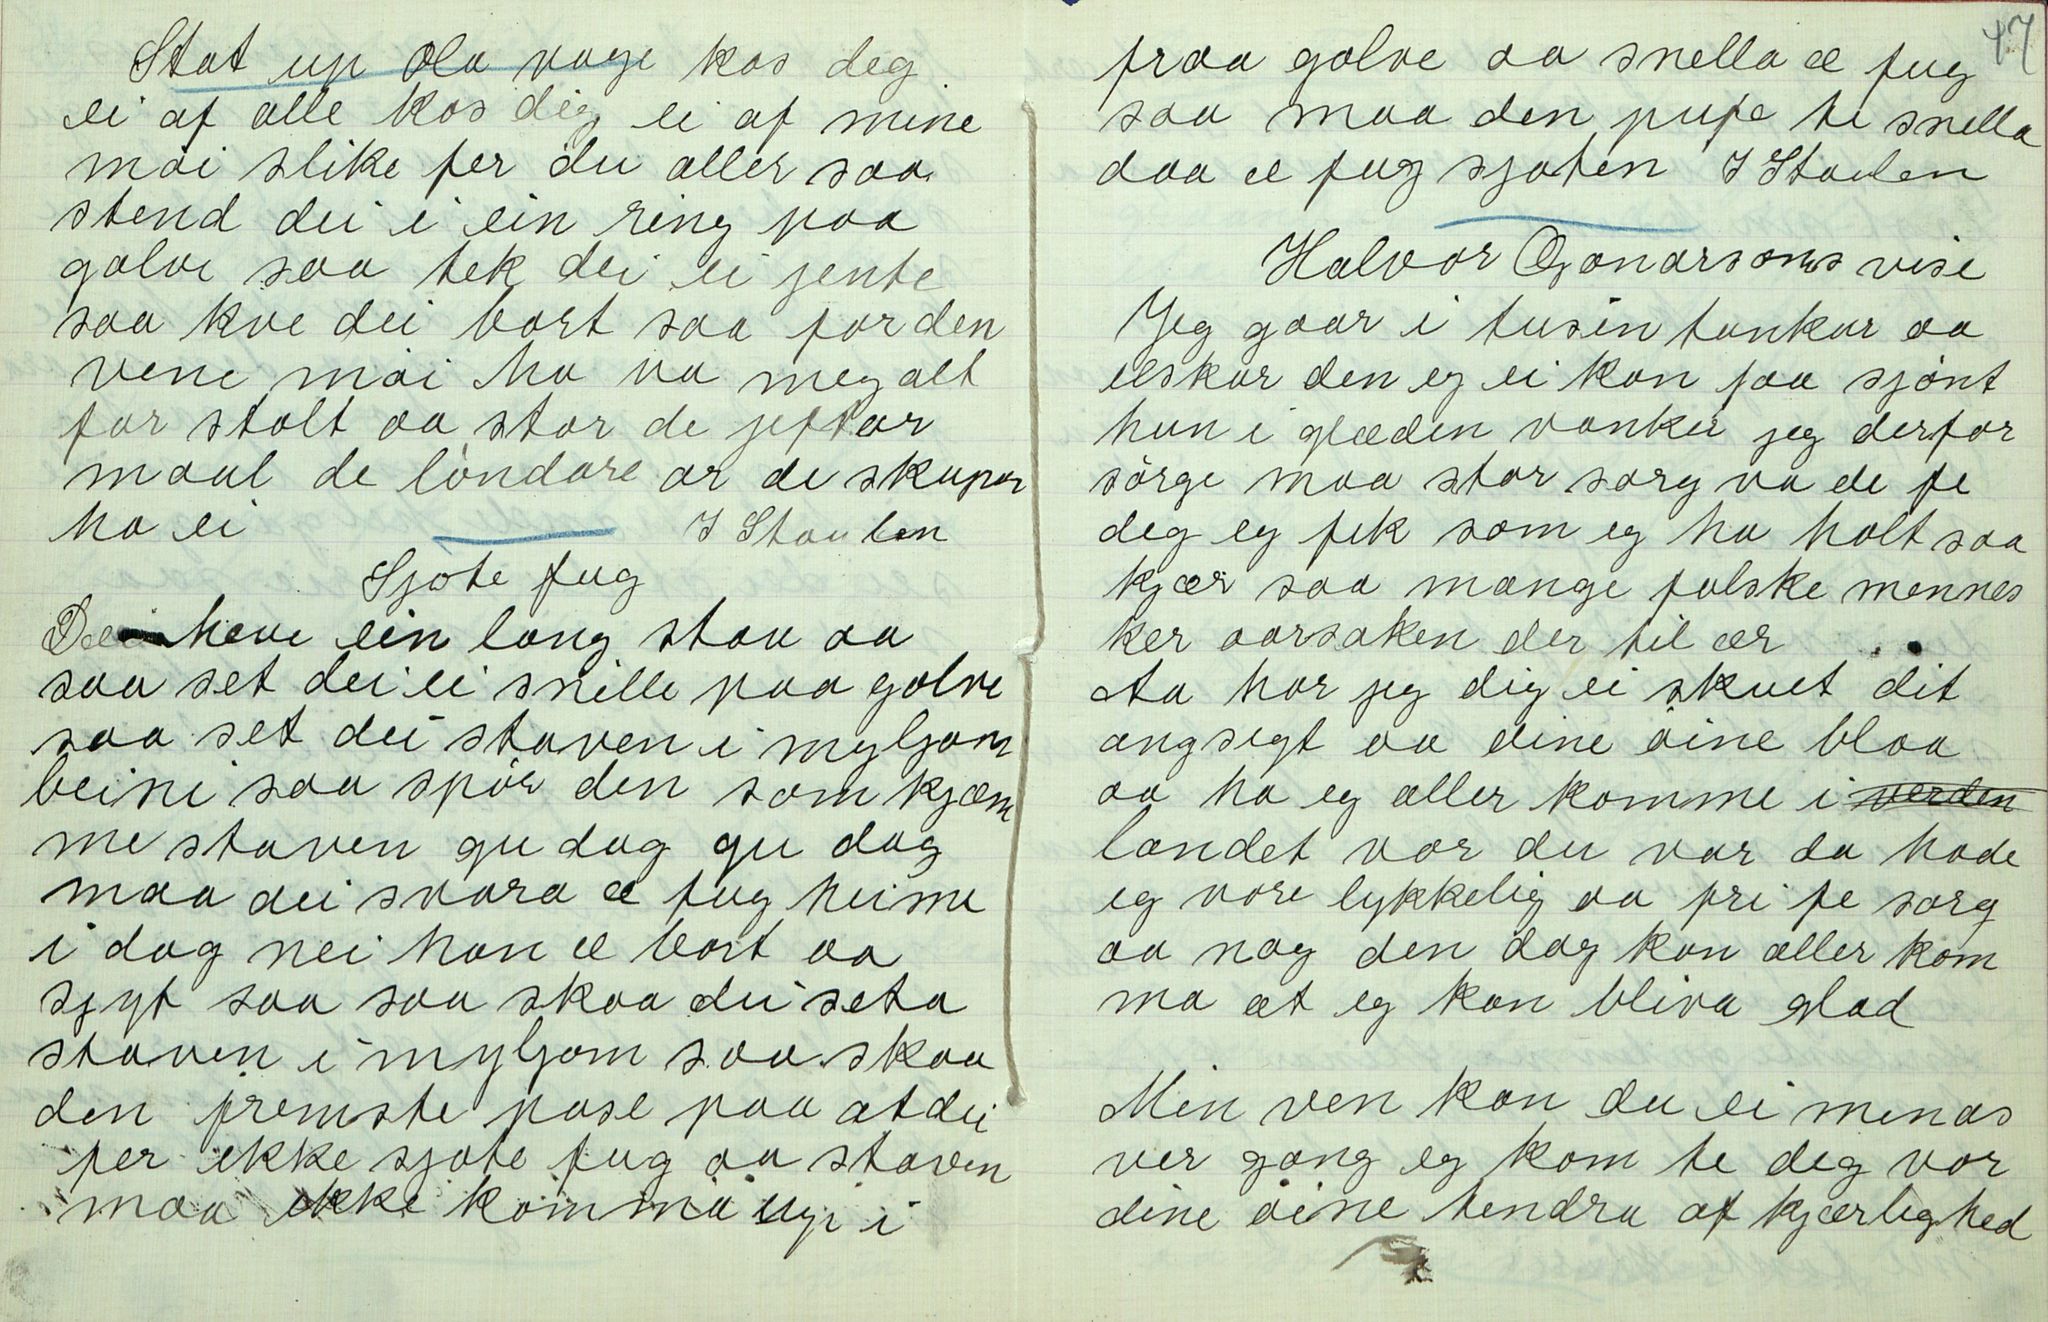 Stat up Ola vage kos deg
ei af alle kos dig ei af mine
møi slike fer du aller saa
stend dei i ein ring paa
golve saa tek dei ei jente
saa kve dei bort saa for den
vene møi ha va meg alt
for stolt aa stor de jeftar
maal de løndare ar de skapar
ha ei
I Staulen
Sjote fug
Dei heve ein lang stav aa
saa set dei ei snille paa golve
saa set dei staven i myljom
beini saa spör den som kjæm
me staven gu dag gu dag
maa dei svara æ fug heime
i dag nei han æ bort aa
sjyt saa saa skaa dei seta
staven i myljom saa skaa
den fremste pase paa at dei
fer ikke sjote fug aa staven
maa ikke komma up i
47
fraa golve aa snella æ fug
saa maa den pupe te snella
daa æ fug sjoten I Staulen
Halvor Gonarsons vise
Jeg gaar i tusin tankar aa
elskar den eg ei kan faa sjønt
hun i glæden vanker jeg derfor
sörge maa stor sorg va de fe
deg eg fek som eg ha holt saa
kjær saa mange falske mennes
ker aarsaken der til ær
Aa har jeg dig ei skuet dit
angsegt aa dine öine blaa
aa ha eg aller komme i verden
landet vor du var da hade
eg vore lykkelig aa fri fe sorg
aa nag den dag kan aller kom
ma at eg kan bliva glad
Min ven kan du ei minas
ver gang eg kom te deg vor
dine öine tendra af kjærlighed